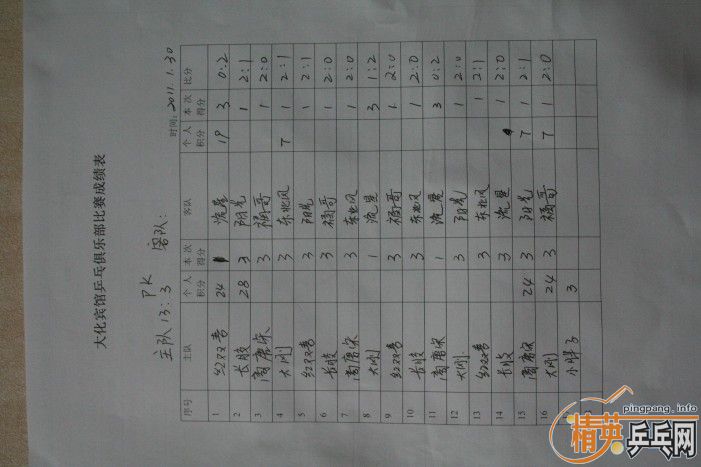 大化宾馆乒乓俱乐部比赛成绩表
主队 13:3 PK 客队:
时间: 2011.1.30
序号 主队 个人积分 本次得分 客队 个人积分 本次得分 比分
1 红双喜 24 1 流星 19 3 0:2
2 长胶 28 3 阳光 1 2:1
3 南唐宋 3 福哥 1 2:0
4 大刚 3 东北风 7 1 2:1
5 红双喜 3 阳光 1 2:1
6 长胶 3 福哥 1 2:0
7 南唐宋 3 东北风 1 2:0
8 大刚 1 流星 3 1:2
9 红双喜 3 福哥 1 2:0
10 长胶 3 东北风 1 2:0
11 南唐宋 1 流星 3 0:2
12 大刚 3 阳光 1 2:0
13 红双喜 3 东北风 1 2:1
14 长胶 3 流星 1 2:0
15 南唐宋 24 3 阳光 7 1 2:1
16 大刚 24 3 福哥 7 1 2:0
小胖子 3
pingpang.info
精英乒乓网